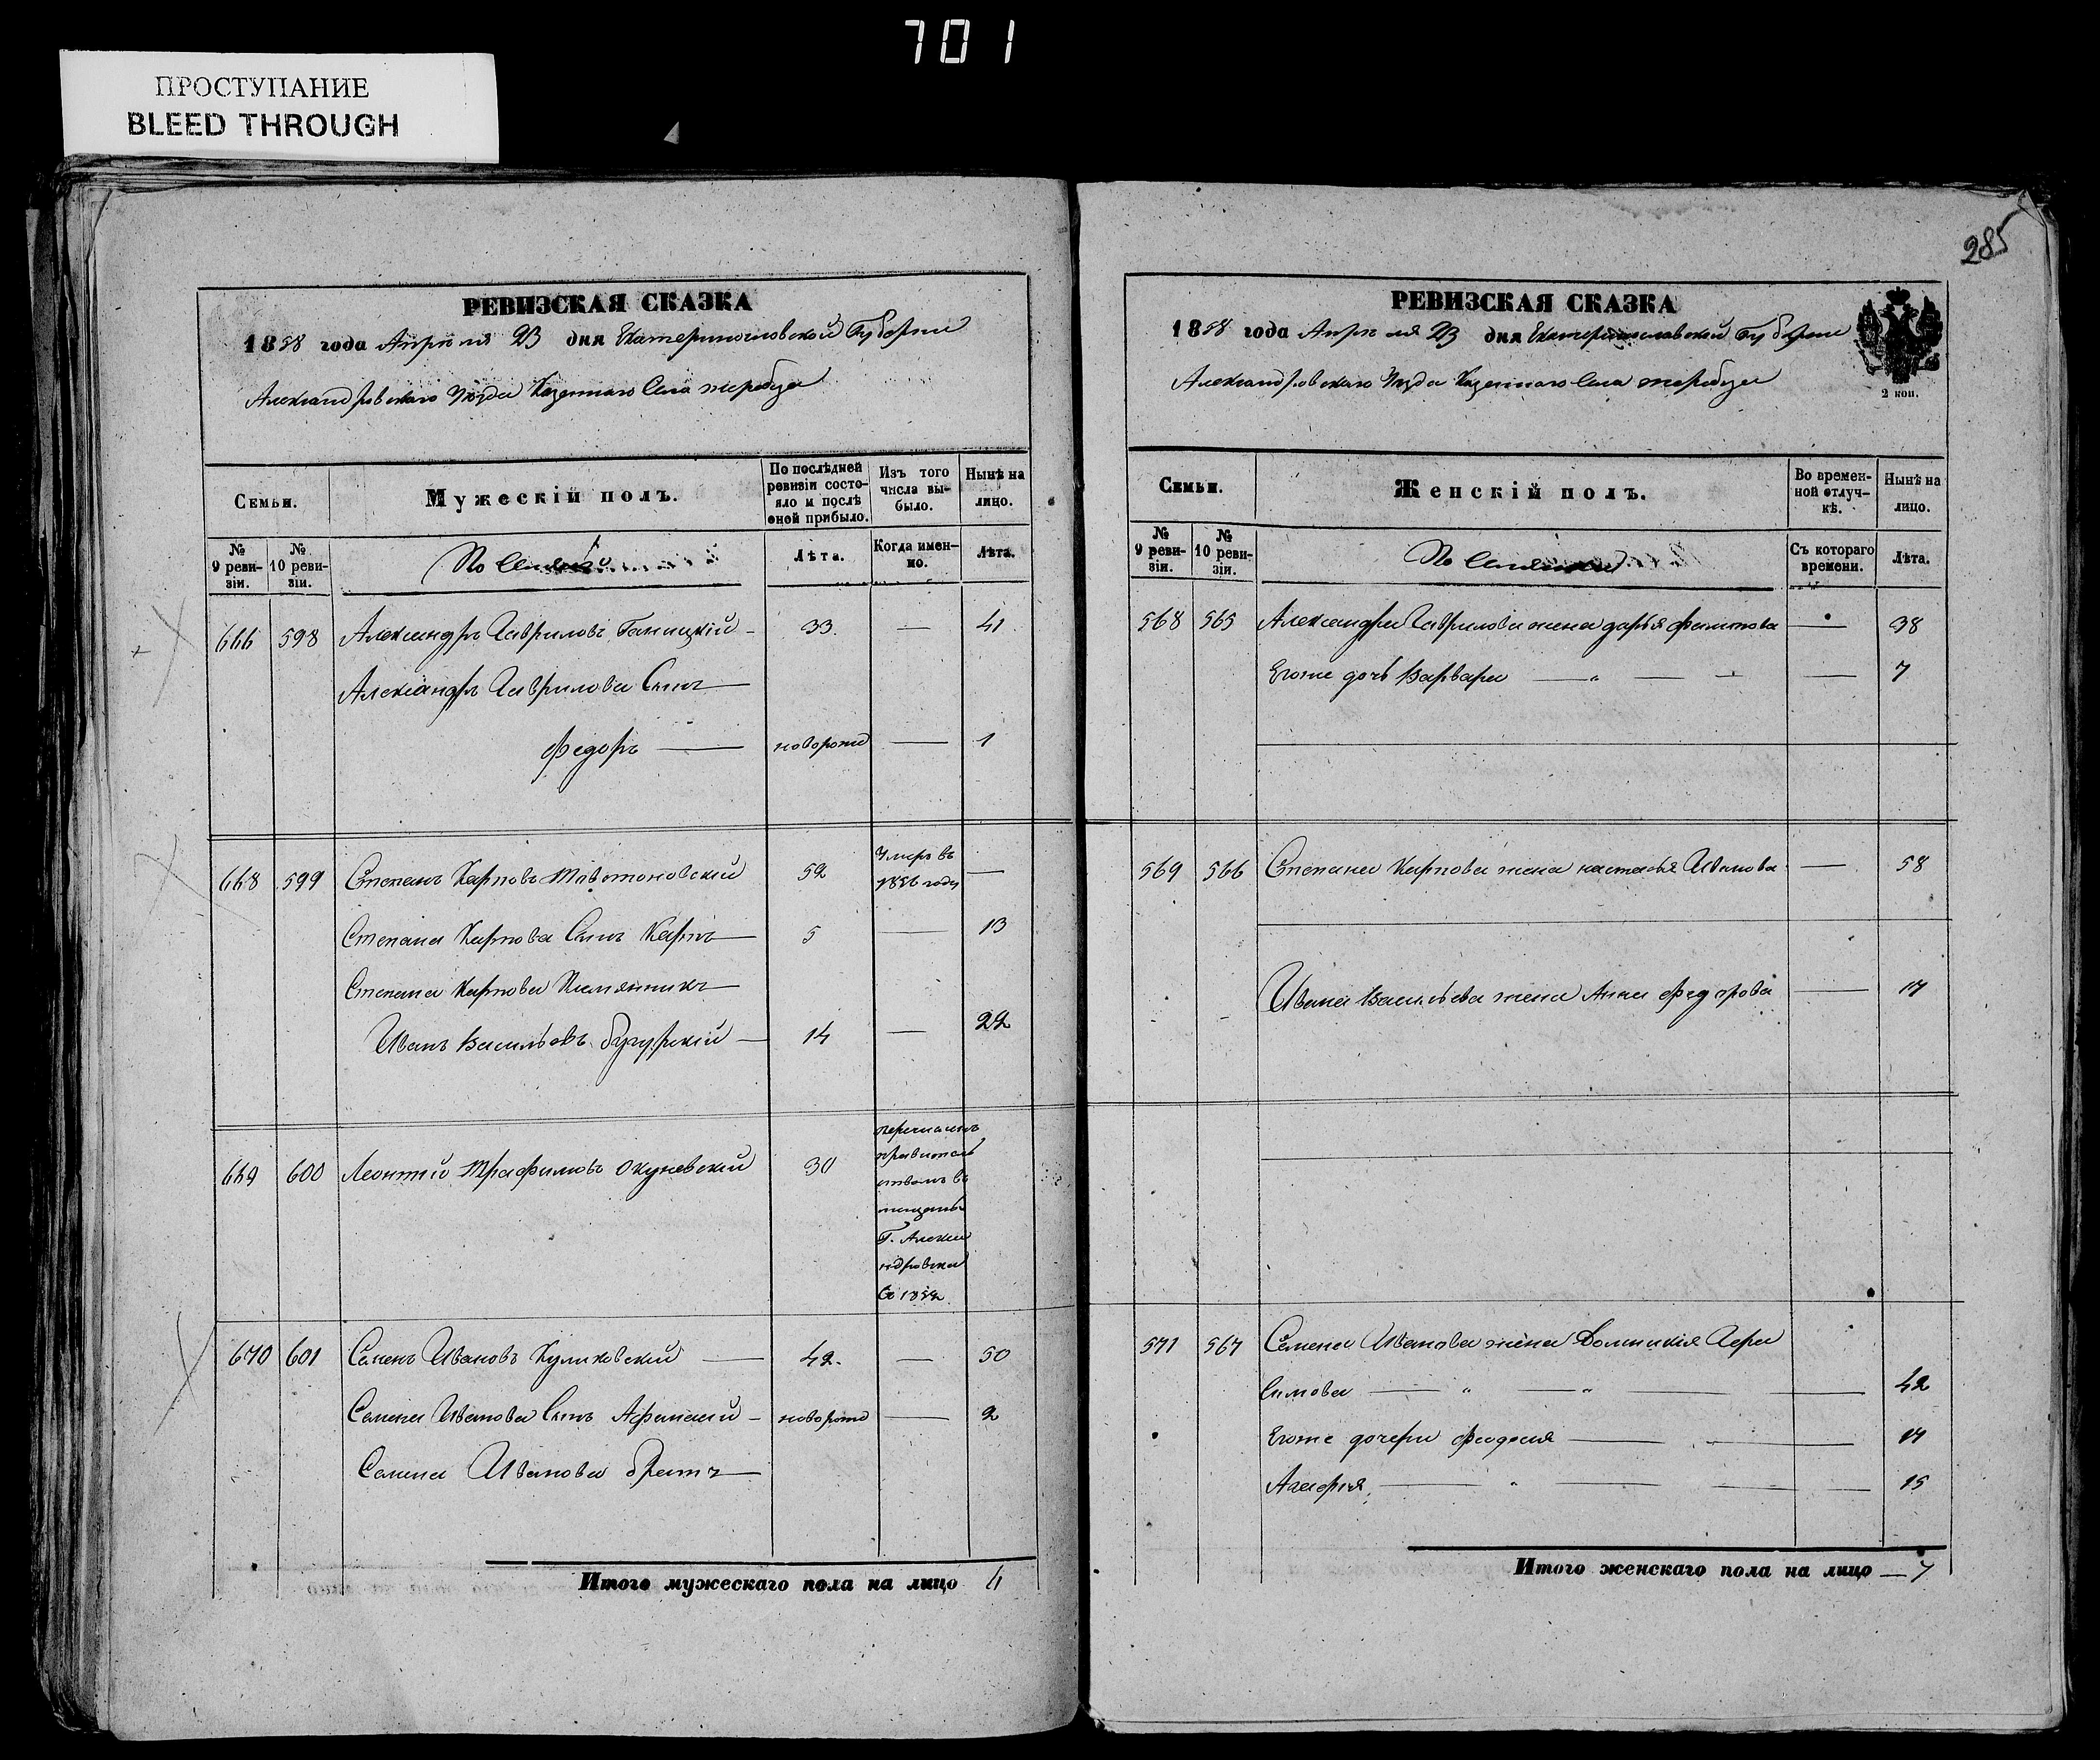 701
ПРОСТУПАНИЕ
BLEED THROUGH
РЕВИЗСКАЯ СКАЗКА
1858 года Апреля 23 дня Екатеринославской Губернии
Александровскаго Уезда Казеннаго Села жеребца
Семьи.
Мужескій полъ.
По послѣдней ревизіи состояло и послѣ оной прибыло.
Изъ того числа выбыло.
Нынѣ на лицо.
№ 9 ревизіи.
№ 10 ревизіи.
Лѣта.
Когда именно.
Лѣта.
666 598 Александръ Гавриловъ Ганицкій 33. — 41
Александръ Гаврилова Сынъ
Федоръ — новорожд — 1
668 599 Степанъ Карповъ 52 Умеръ въ 1856 году —
Степана Карпова Сынъ Карпъ 5 — 13
Степана Карпова Племянникъ
Иванъ Васильевъ 14 — 22
669 600 Леонтій Трофимовъ Окуневскій 30 перечисленъ
въ
Г. Алекса
ндровска
670 601 Семенъ Ивановъ Куликовскій — 42. — 50
Семена Иванова Сынъ Афанасий — новорожд — 2
Семена Иванова братъ —
Итого мужескаго пола на лицо
285
РЕВИЗСКАЯ СКАЗКА
1858 года Апреля 23 дня Екатеринославской Губернии
Александровскаго Уезда Казеннаго Села жеребца
2 коп.
Семьи.
Женскій полъ.
Во временной отлучкѣ.
Нынѣ на лицо.
№ 9 ревизіи.
№ 10 ревизіи.
Съ котораго времени.
Лѣта.
568 565 Александра Гаврилова жена дарья — 38
Егоже дочь Варвара — — 7
569 566 Степана Карпова жена настасья Иванова — 58
Ивана Васильева жена Анна Федорова — 17
571 567 Семена Иванова жена Домникия Гера
симова — 42
Егоже дочери Феодосия — 17
— 15
Итого женскаго пола на лицо — 7